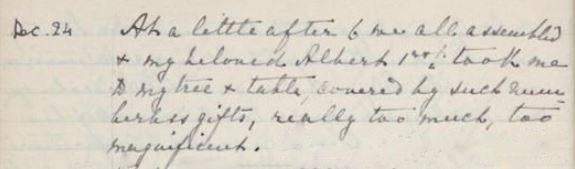 Dec. 24 At a little after 6 we all assembled
& my beloved Albert 1rst took me
to my tree & table, covered by such num=
berless gifts, really too much, too
magnificent.